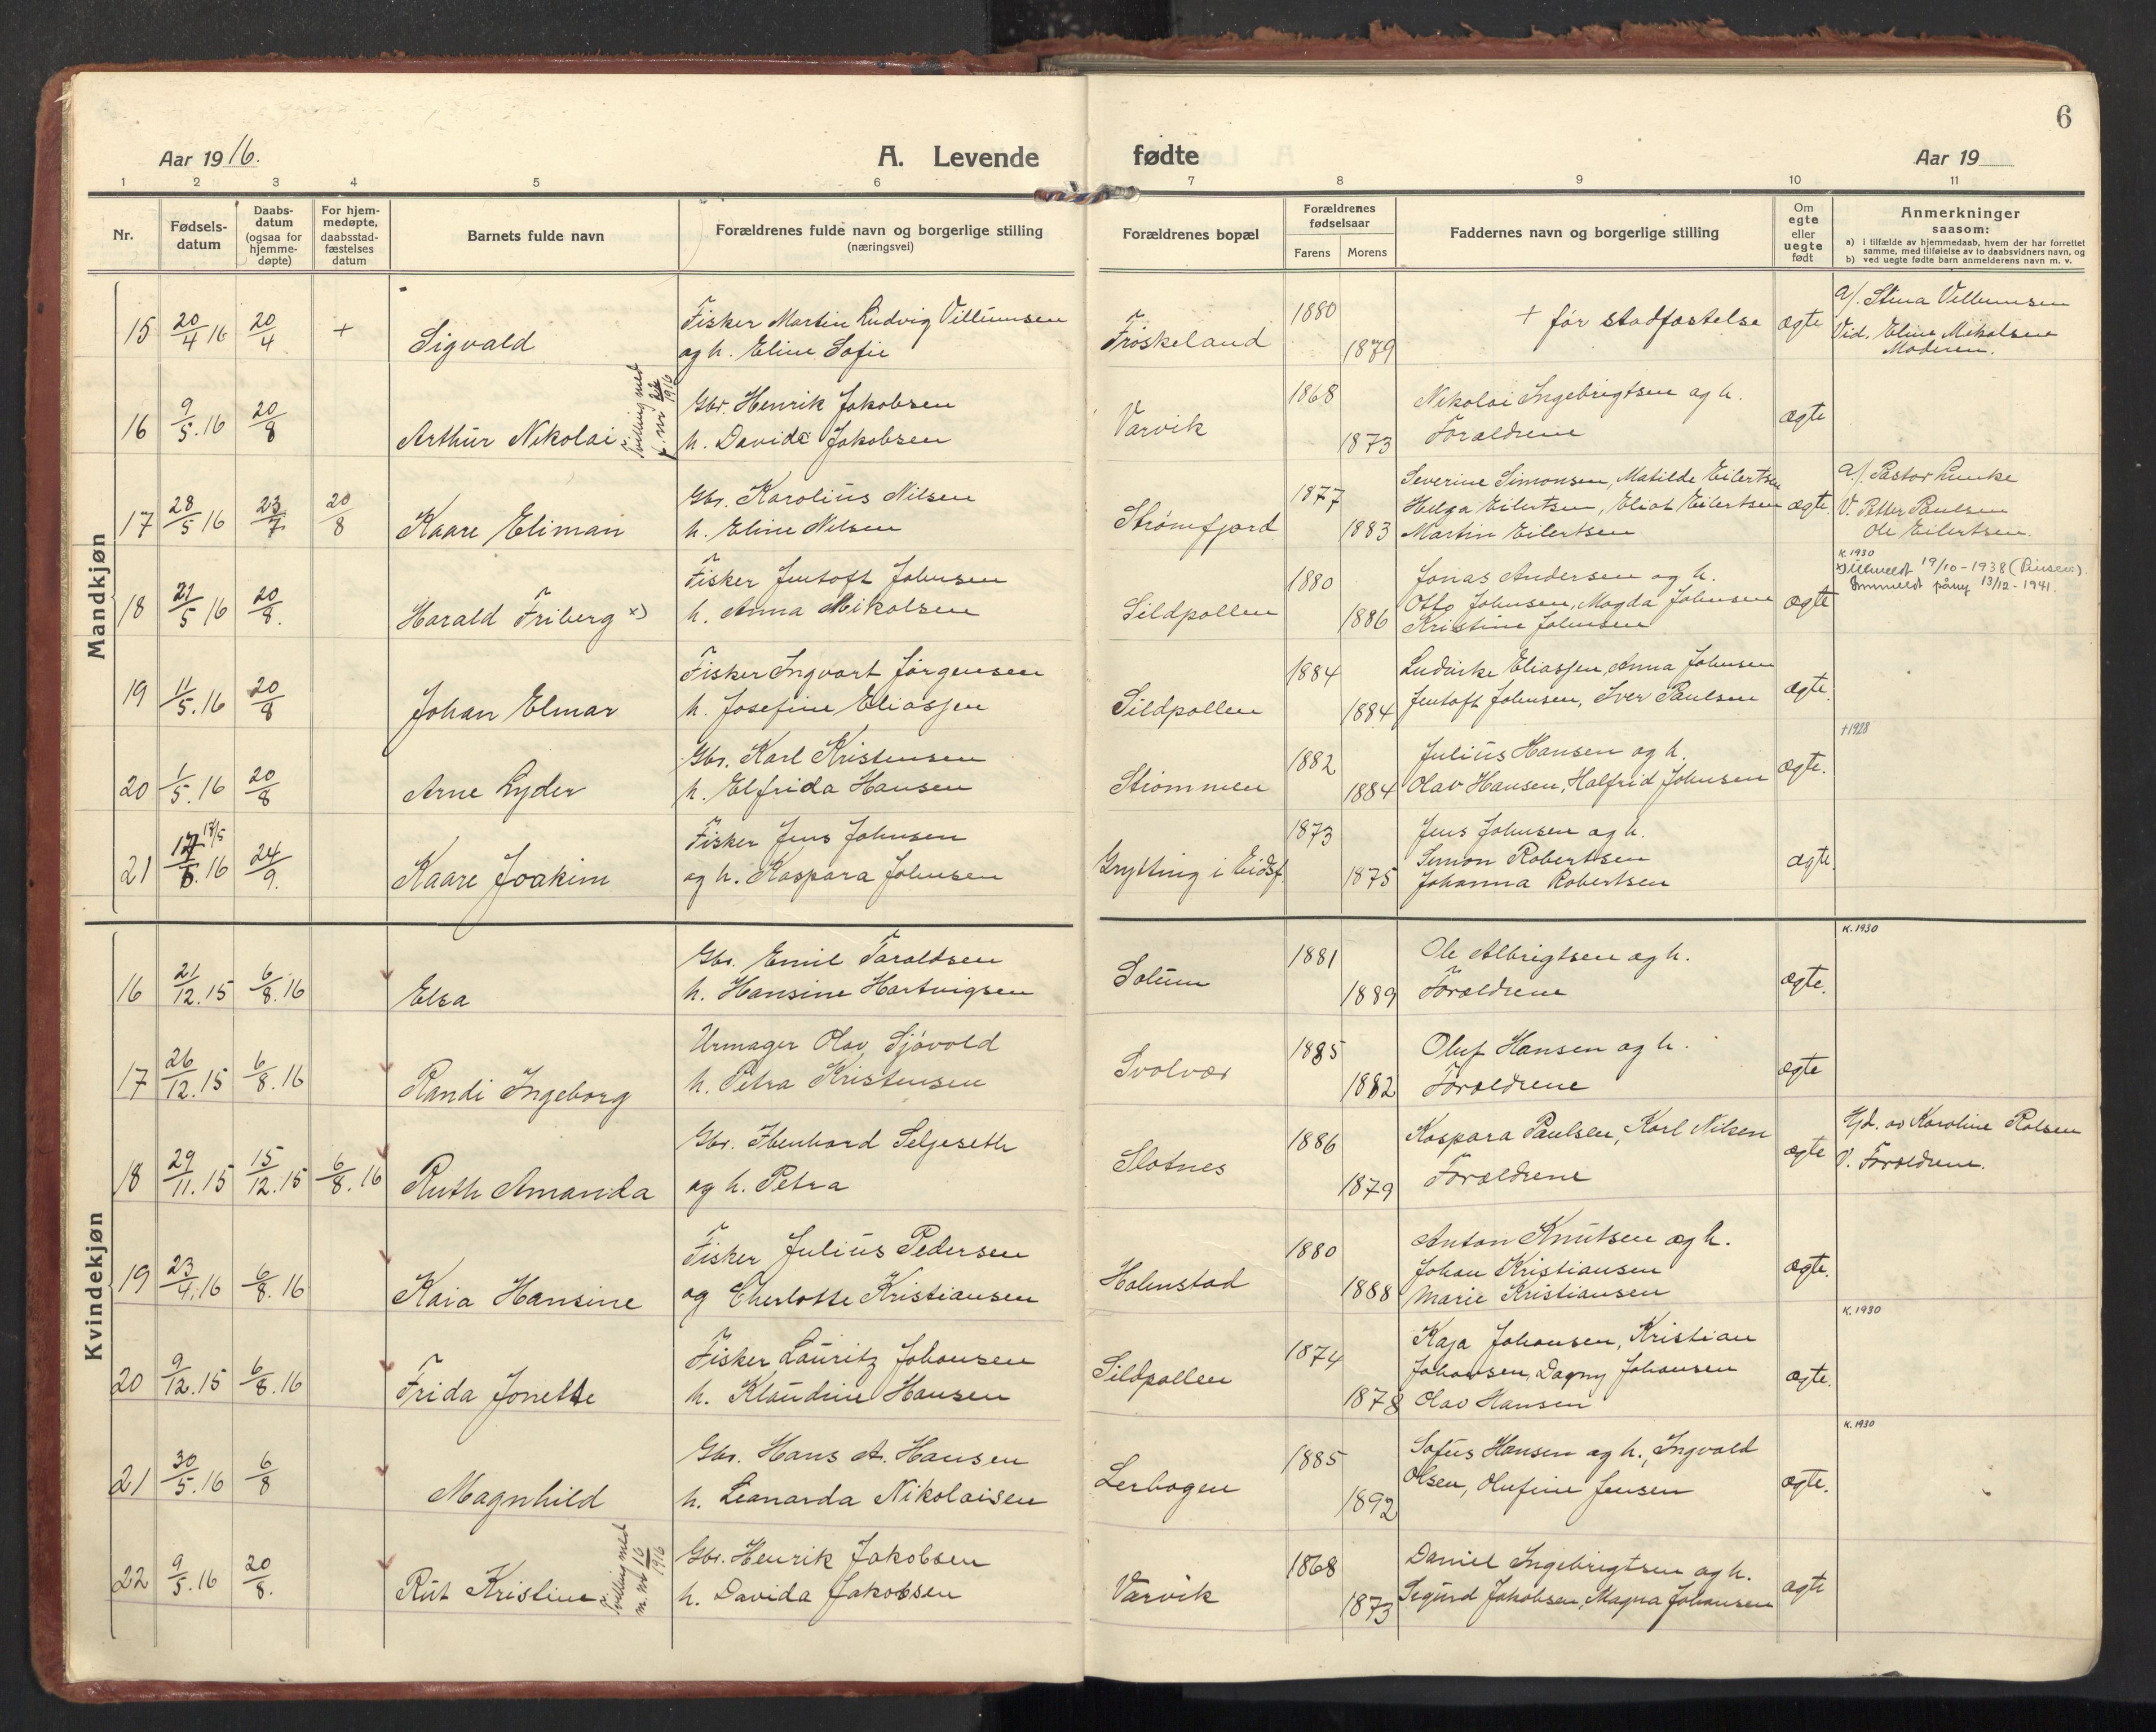 6
Aar 1916.
A. Levende
fødte
Aar 19
1 2 3 4 5 6 7 8 9 10 11
Nr.
Fødsels-
datum
Daabs-
datum
(ogsaa for
hjemme-
døpte)
For hjem-
medøpte,
daabsstad-
fæstelses
datum
Barnets fulde navn
Forældrenes fulde navn og borgerlige stilling
(næringsvei)
Forældrenes bopæl
Forældrenes
fødselsaar
Farens Morens
Faddernes navn og borgerlige stilling
Om
egte
eller
uegte
født
Anmerkninger
saasom:
a) i tilfælde av hjemmedaab, hvem der har forrettet
samme, med tilføielse av to daabsvidners navn, og
b) ved uegte fødte barn anmelderens navn m. v.
Mandkjøn
15 20/4 16 20/4 + Sigvald
Fisker Martin Ludvig Villumsen
og h. Eline Sofie
Frøskeland 1880 1879
+ før stadfæstelse ægte
a/. Stina Villumsen
Vid. Eline Mikalsen
Moderen.
16 9/5.16 20/8 Arthur Nikolai
Tvilling med
f. nr 22 1916
Gbr. Henrik Jakobsen
h. Davida Jakobsen
Varvik 1868 1873
Nikolai Ingebrigtsen og h.
Forældrene
ægte
17 28/5 16 23/7 20/8 Kaare Eliman
Gbr. Karolius Nilsen
h. Eline Nilsen
Strømfjord 1877 1883
Severine Simonsen, Matilde Eilertsen
Helga Eilertsen, Eliot Eilertsen
Martin Eilertsen
ægte.
a/. Pastor Lunke
V. Petter Paulsen
Ole Eilertsen.
18 21/5 16 20/8. Harald Friberg x)
Fisker Jentoft Johnsen
h. Anna Mikalsen
Sildpollen 1880 1886
Jonas Andersen og h.
Otto Johnsen, Magda Johnsen
Kristine Johnsen
ægte
K. 1930
x) Utmeldt 19/10-1938 (Pinsev.).
Innmeldt påny 13/12-1941.
19 11/5.16 20/8 Johan Elmar
Fisker Ingvart Jørgensen
h. Josefine Eliassen
Sildpollen 1884 1884
Ludvike Eliassen, Anna Johnsen
Jentoft Johnsen, Iver Paulsen
ægte.
20 1/5.16 20/8 Arne Lyder
Gbr. Karl Kristensen
h. Elfrida Hansen
Strømmen 1882 1884
Julius Hansen og h.
Olav Hansen, Halfrid Johnsen
ægte.
+1928
21 17/5 16 17/5 24/9. Kaare Joakim
Fisker Jens Johnsen
og h. Kaspara Johnsen
Grytting i Eidsf. 1873 1875
Jens Johnsen og h.
Simon Robertsen
Johanna Robertsen
ægte.
Kvindekjøn
16 21/12.15 6/8.16 Elsa
Gbr. Emil Taraldsen
h. Hansine Hartvigsen
Solum 1881 1889
Ole Albrigtsen og h.
Forældrene
ægte.
K. 1930
17 26/12.15 6/8.16 Randi Ingeborg
Urmager Olav Sjøvold
h. Petra Kristensen
Svolvær 1885 1882
Oluf Hansen og h.
Forældrene
ægte
18 29/11.15 15/12.15 6/8.16 Ruth Amanda
Gbr. Ibenhard Seljeseth
og h. Petra
Slotnes 1886 1879
Kaspara Paulsen, Karl Nilsen
Forældrene
ægte
Hjd. av Karoline Rolsen
V. Forældrene.
19 23/4.16 6/8.16 Kaia Hansine
Fisker Julius Pedersen
og Cherlotte Kristiansen
Holmstad 1880 1888
Anton Knutsen og h.
Johan Kristiansen
Marie Kristiansen
ægte.
20 9/12.15 6/8.16 Frida Jonette
Fisker Lauritz Johansen
h. Klaudine Hansen
Sildpollen 1874 1878
Kaja Johansen, Kristian
Johansen, Dagny Johansen
Olav Hansen
ægte.
K. 1930
21 30/5.16 6/8 Magnhild
Gbr. Hans A. Hansen
h. Leonarda Nikolaisen
Lerbogen 1885 1892
Sofus Hansen og h., Ingvald
Olsen, Olufine Jensen
ægte.
K. 1930
22 9/5.16 20/8. Rut Kristine
Tvilling med
m. nr 16 1916
Gbr. Henrik Jakobsen
h. Davida Jakobsen
Varvik 1868 1873
Daniel Ingebrigtsen og h.
Sigurd Jakobsen, Magna Johansen
ægte